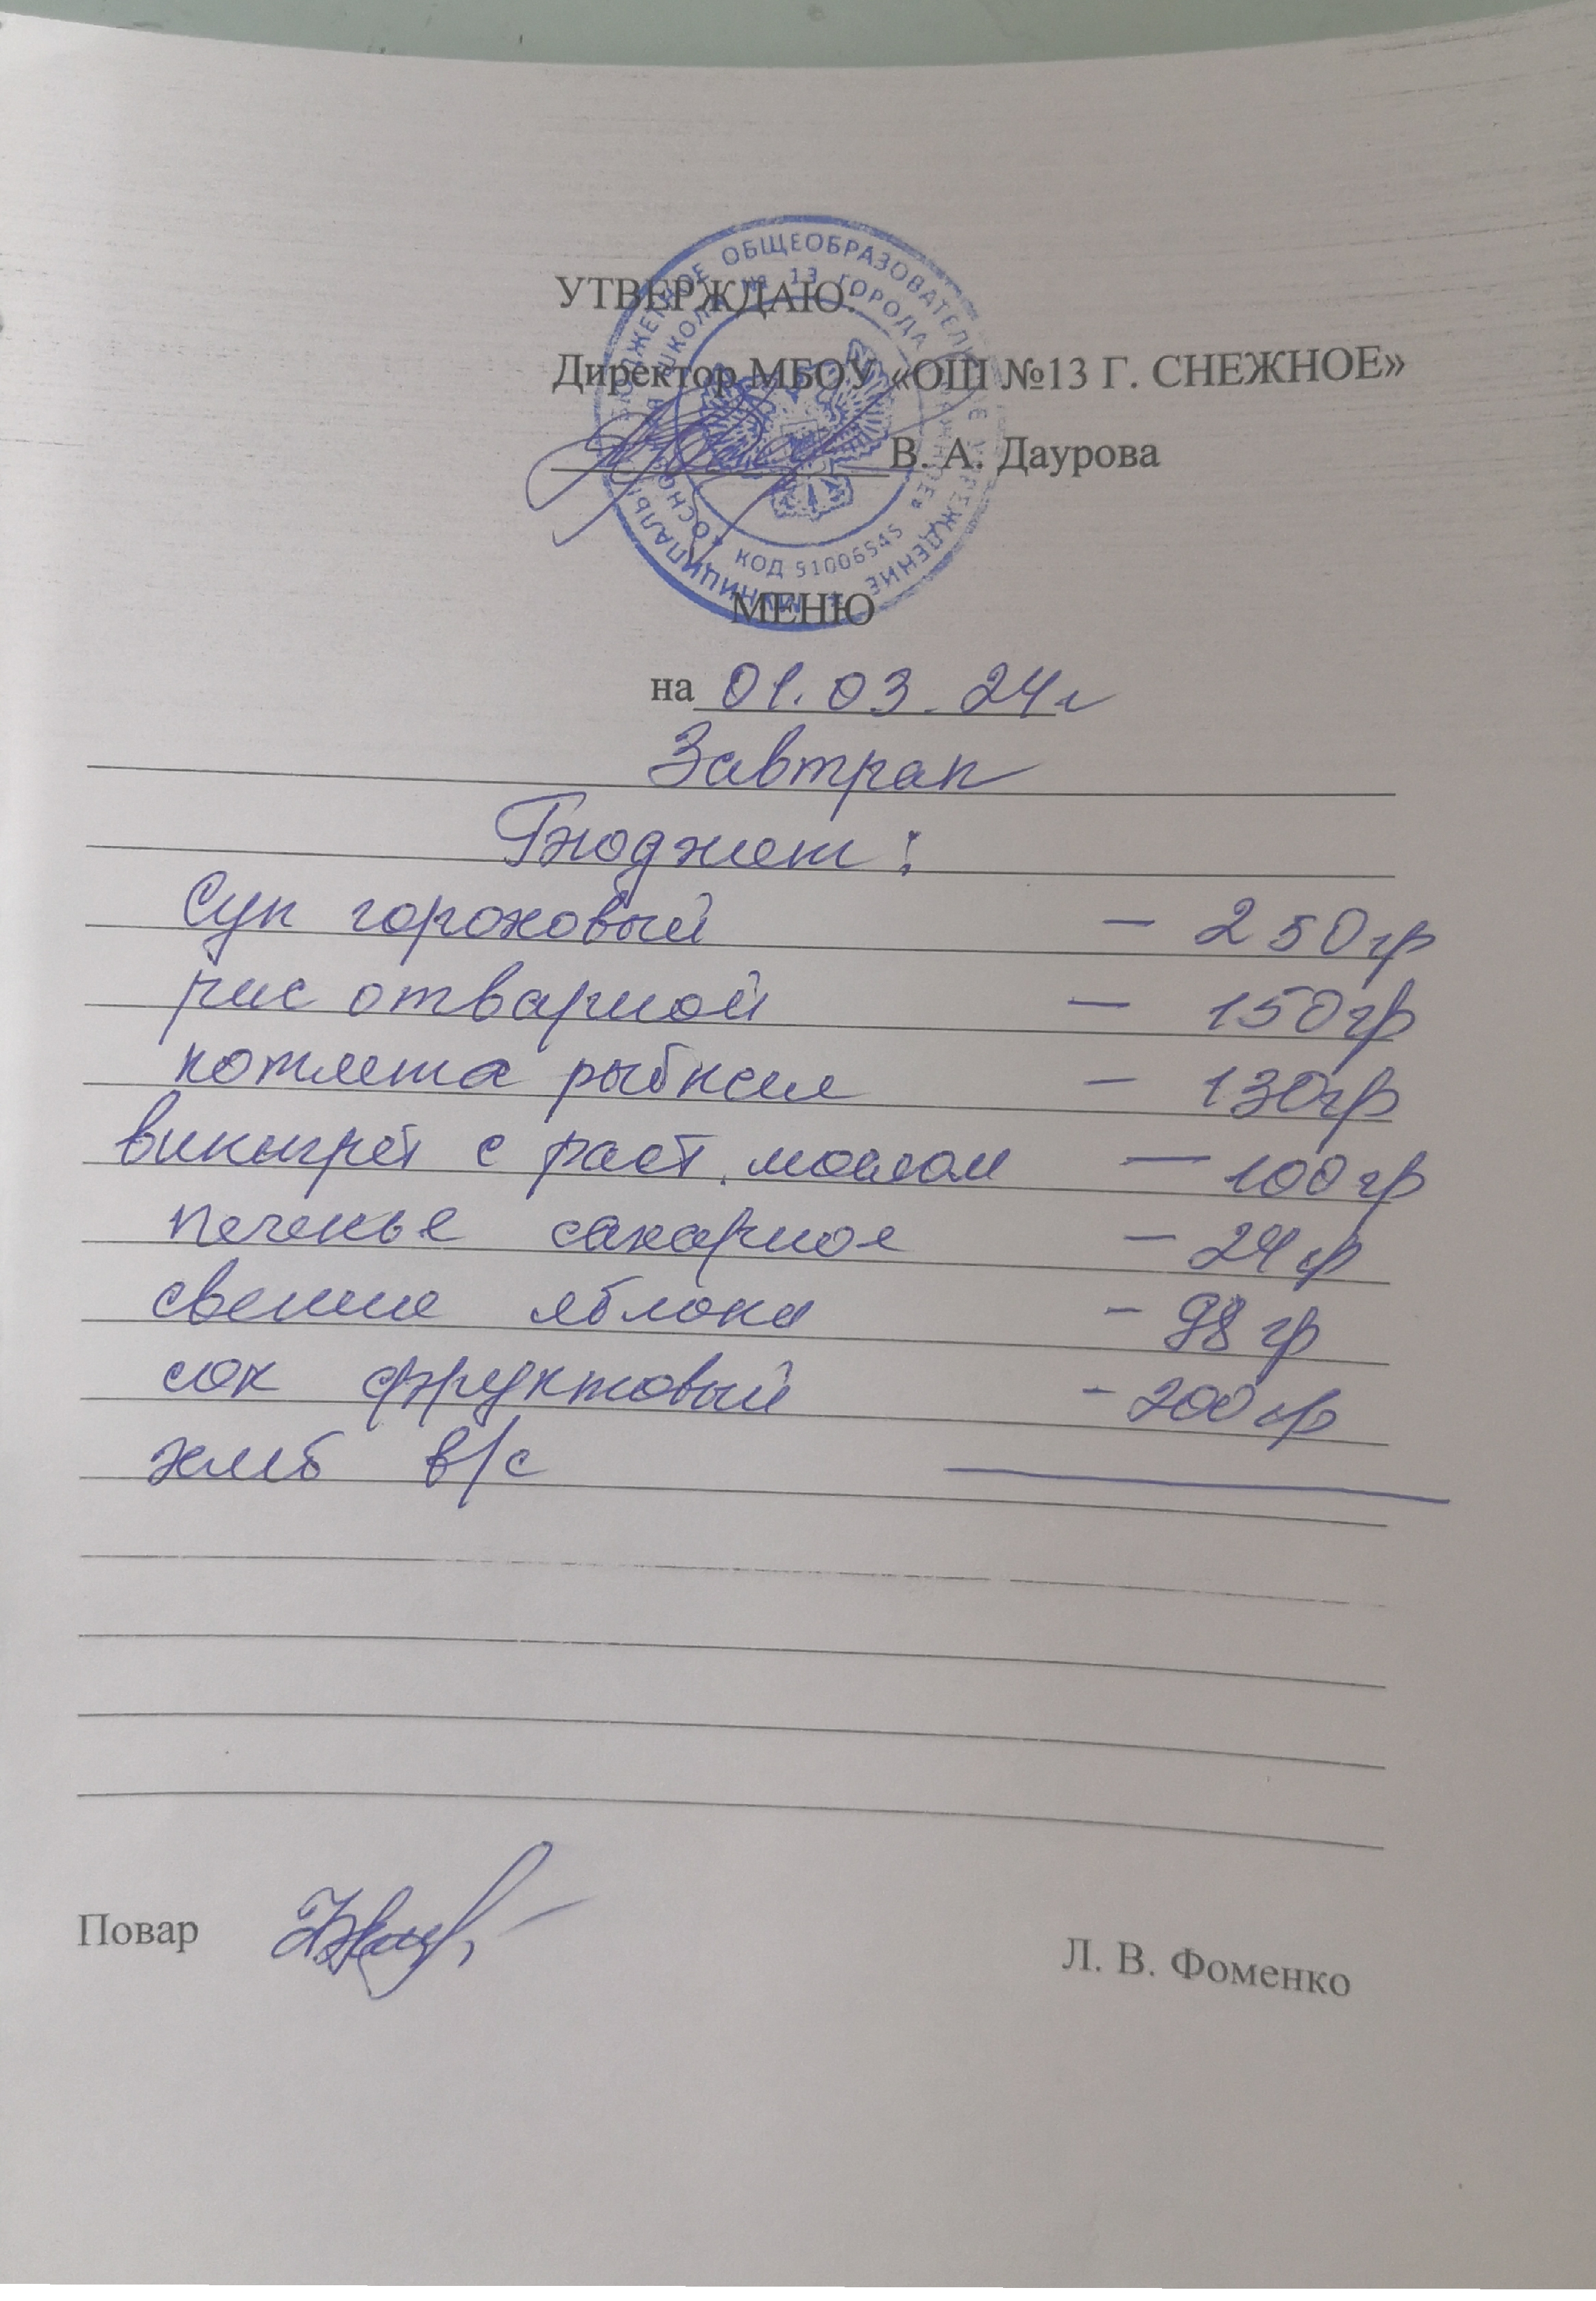 УТВЕРЖДАЮ:
Директор МБОУ «ОШ №13 Г. СНЕЖНОЕ»
В. А. Даурова
ОБЩЕОБРАЗОВАТЕЛЬНОЕ УЧРЕЖДЕНИЕ
ШКОЛА № 13 ГОРОДА
КОД 51006545
МЕНЮ
на 01.03.24г
Завтрак
Бюджет:
Суп гороховый - 250гр
рис отварной - 150гр
котлета рыбная - 130гр
винегрет с раст. маслом - 100гр
печенье сахарное - 24гр
свежие яблоки - 98гр
сок фруктовый - 200гр
хлеб в/с
Повар
Л. В. Фоменко